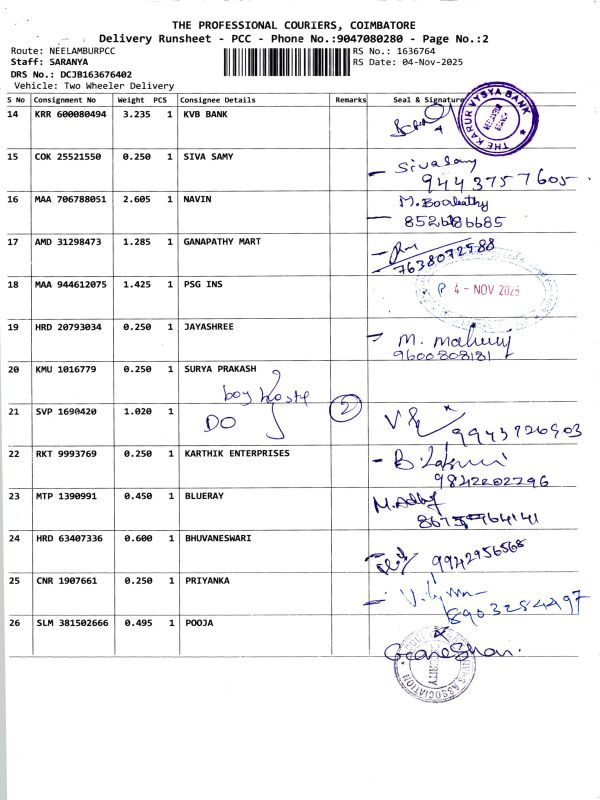 THE PROFESSIONAL COURIERS, COIMBATORE
Delivery Runsheet - PCC - Phone No.:9047080280 - Page No.:2
Route: NEELAMBURPCC RS No.: 1636764
Staff: SARANYA RS Date: 04-Nov-2025
DRS No.: DCJB163676402
Vehicle: Two Wheeler Delivery
S No Consignment No Weight PCS Consignee Details Remarks Seal & Signature
14 KRR 600080494 3.235 1 KVB BANK
THE KARUR VYSYA BANK
15 COK 25521550 0.250 1 SIVA SAMY
Sivasamy
9443757605
16 MAA 706788051 2.605 1 NAVIN
17 AMD 31298473 1.285 1 GANAPATHY MART
7638072988
18 MAA 944612075 1.425 1 PSG INS
4 - NOV 2025
19 HRD 20793034 0.250 1 JAYASHREE
9600808181
20 KMU 1016779 0.250 1 SURYA PRAKASH
boy
21 SVP 1690420 1.020 1 DO 2
22 RKT 9993769 0.250 1 KARTHIK ENTERPRISES
9842202296
23 MTP 1390991 0.450 1 BLUERAY
24 HRD 63407336 0.600 1 BHUVANESWARI
9942956568
25 CNR 1907661 0.250 1 PRIYANKA
8903284497
26 SLM 381502666 0.495 1 POOJA
ASSOCIATION